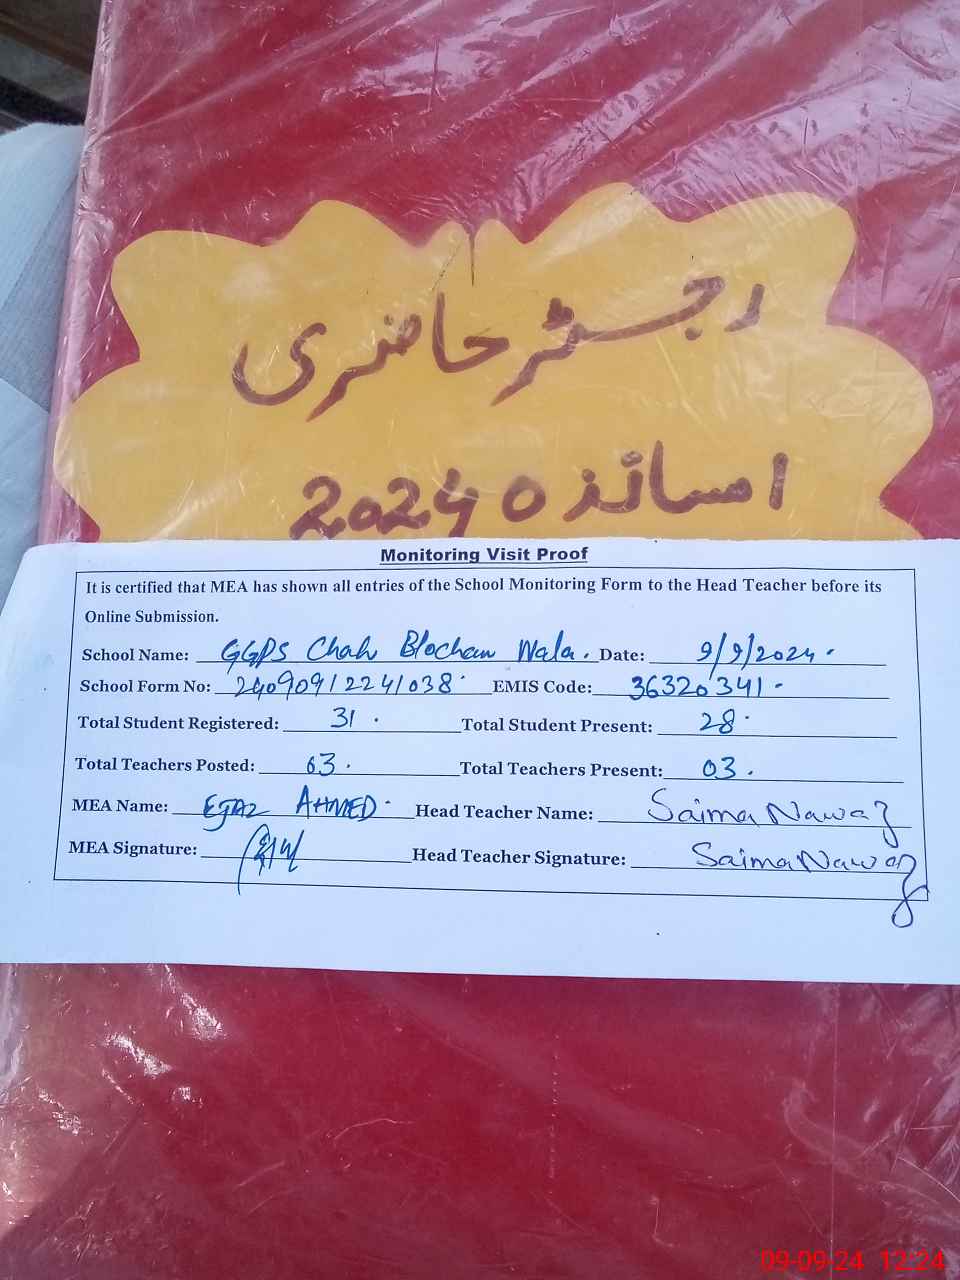 رجسٹر حاضری
اساتذہ 2024
Monitoring Visit Proof
It is certified that MEA has shown all entries of the School Monitoring Form to the Head Teacher before its
Online Submission.
School Name: GGPS Chah Blochan Wala. Date: 9/9/2024.
School Form No: 24090912241038 EMIS Code: 36320341
Total Student Registered: 31. Total Student Present: 28.
Total Teachers Posted: 03. Total Teachers Present: 03.
MEA Name: EJAZ AHMED. Head Teacher Name: Saima Nawaz
MEA Signature: Head Teacher Signature: Saima Nawaz
09-09-24 12:24